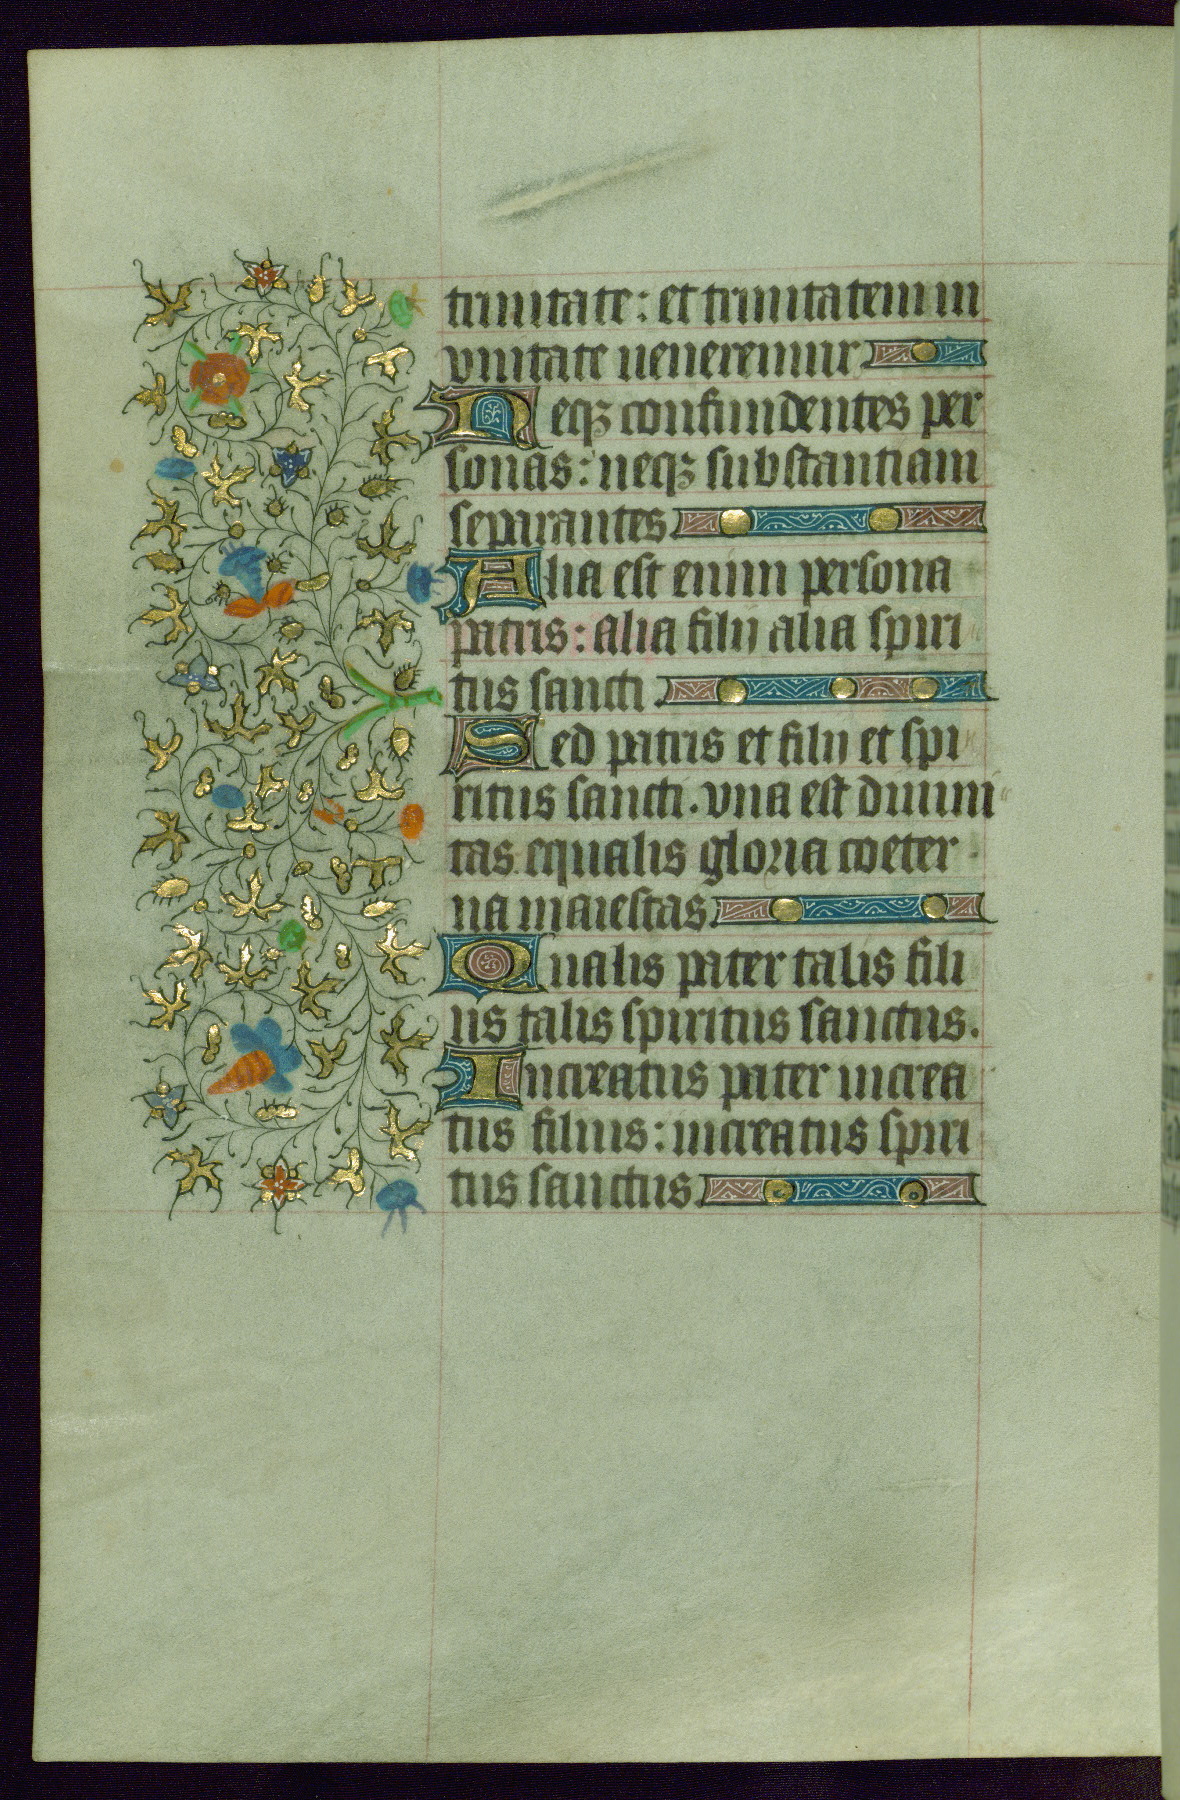 trinitate: et trinitatem in
vnitate ueneremur
Neqꝫ confundentes per
sonas: neqꝫ substantiam
separantes
Alia est enim persona
patris: alia filij alia spiri
tus sancti
Sed patris et filij et spi
ritus sancti. vna est diuini
tas equalis gloria coeter
na maiestas
Qualis pater talis fili
us talis spiritus sanctus.
Increatus pater increa
tus filius: increatus spiri
tus sanctus